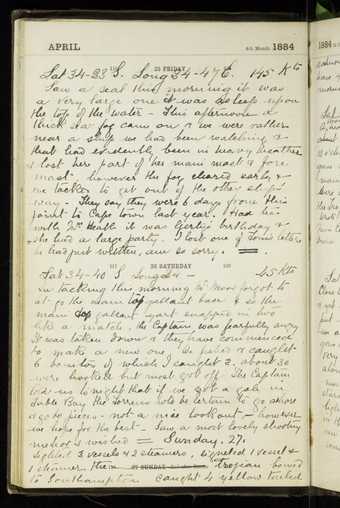 APRIL 4th Month 1884
25 FRIDAY
Lat 34-23 S. Long 34-47 E. 145 Kts
Saw a seal this morning it was
a very large one & was asleep upon
the top of the water - This afternoon a
thick fog came on & we were rather
near a ship we had been watching &
that had evidently been in heavy weather
& lost her part of her main mast & fore
mast - however the fog cleared early &
we tacked to get out of the other ships
way - They say they were 6 days from this
point to Cape Town last year. Had tea
with Heath it was Gertys birthday &
she had a large party. I lost one of letters
had just written, am so sorry.
26 SATURDAY
Lat 34-40 S Long 34 - 45 Kts
In tacking this morning Moor forgot to
let go the main top gallant brace & so the
main top gallant yart snapped in two
like a match, the Captain was fearfully angry
It was taken down & they have commenced
to make a new one. We fished & caught
6 bonitos of which I caught 2. about 30
were hooked but most got off. The Captain
told us tonight that if we got a gale in
Table Bay the Torrens wold be certain to go ashore
& go to pieces - not a nice lookout - however
we hope for the best - Saw a most lovely shooting
meteor & wished = Sunday. 27.
sighted 3 vessels & 2 steamers, signalled 1 vessel &
1 steamer the 27 SUNDAY trojan bound
to Southampton caught 4 yellow tailed